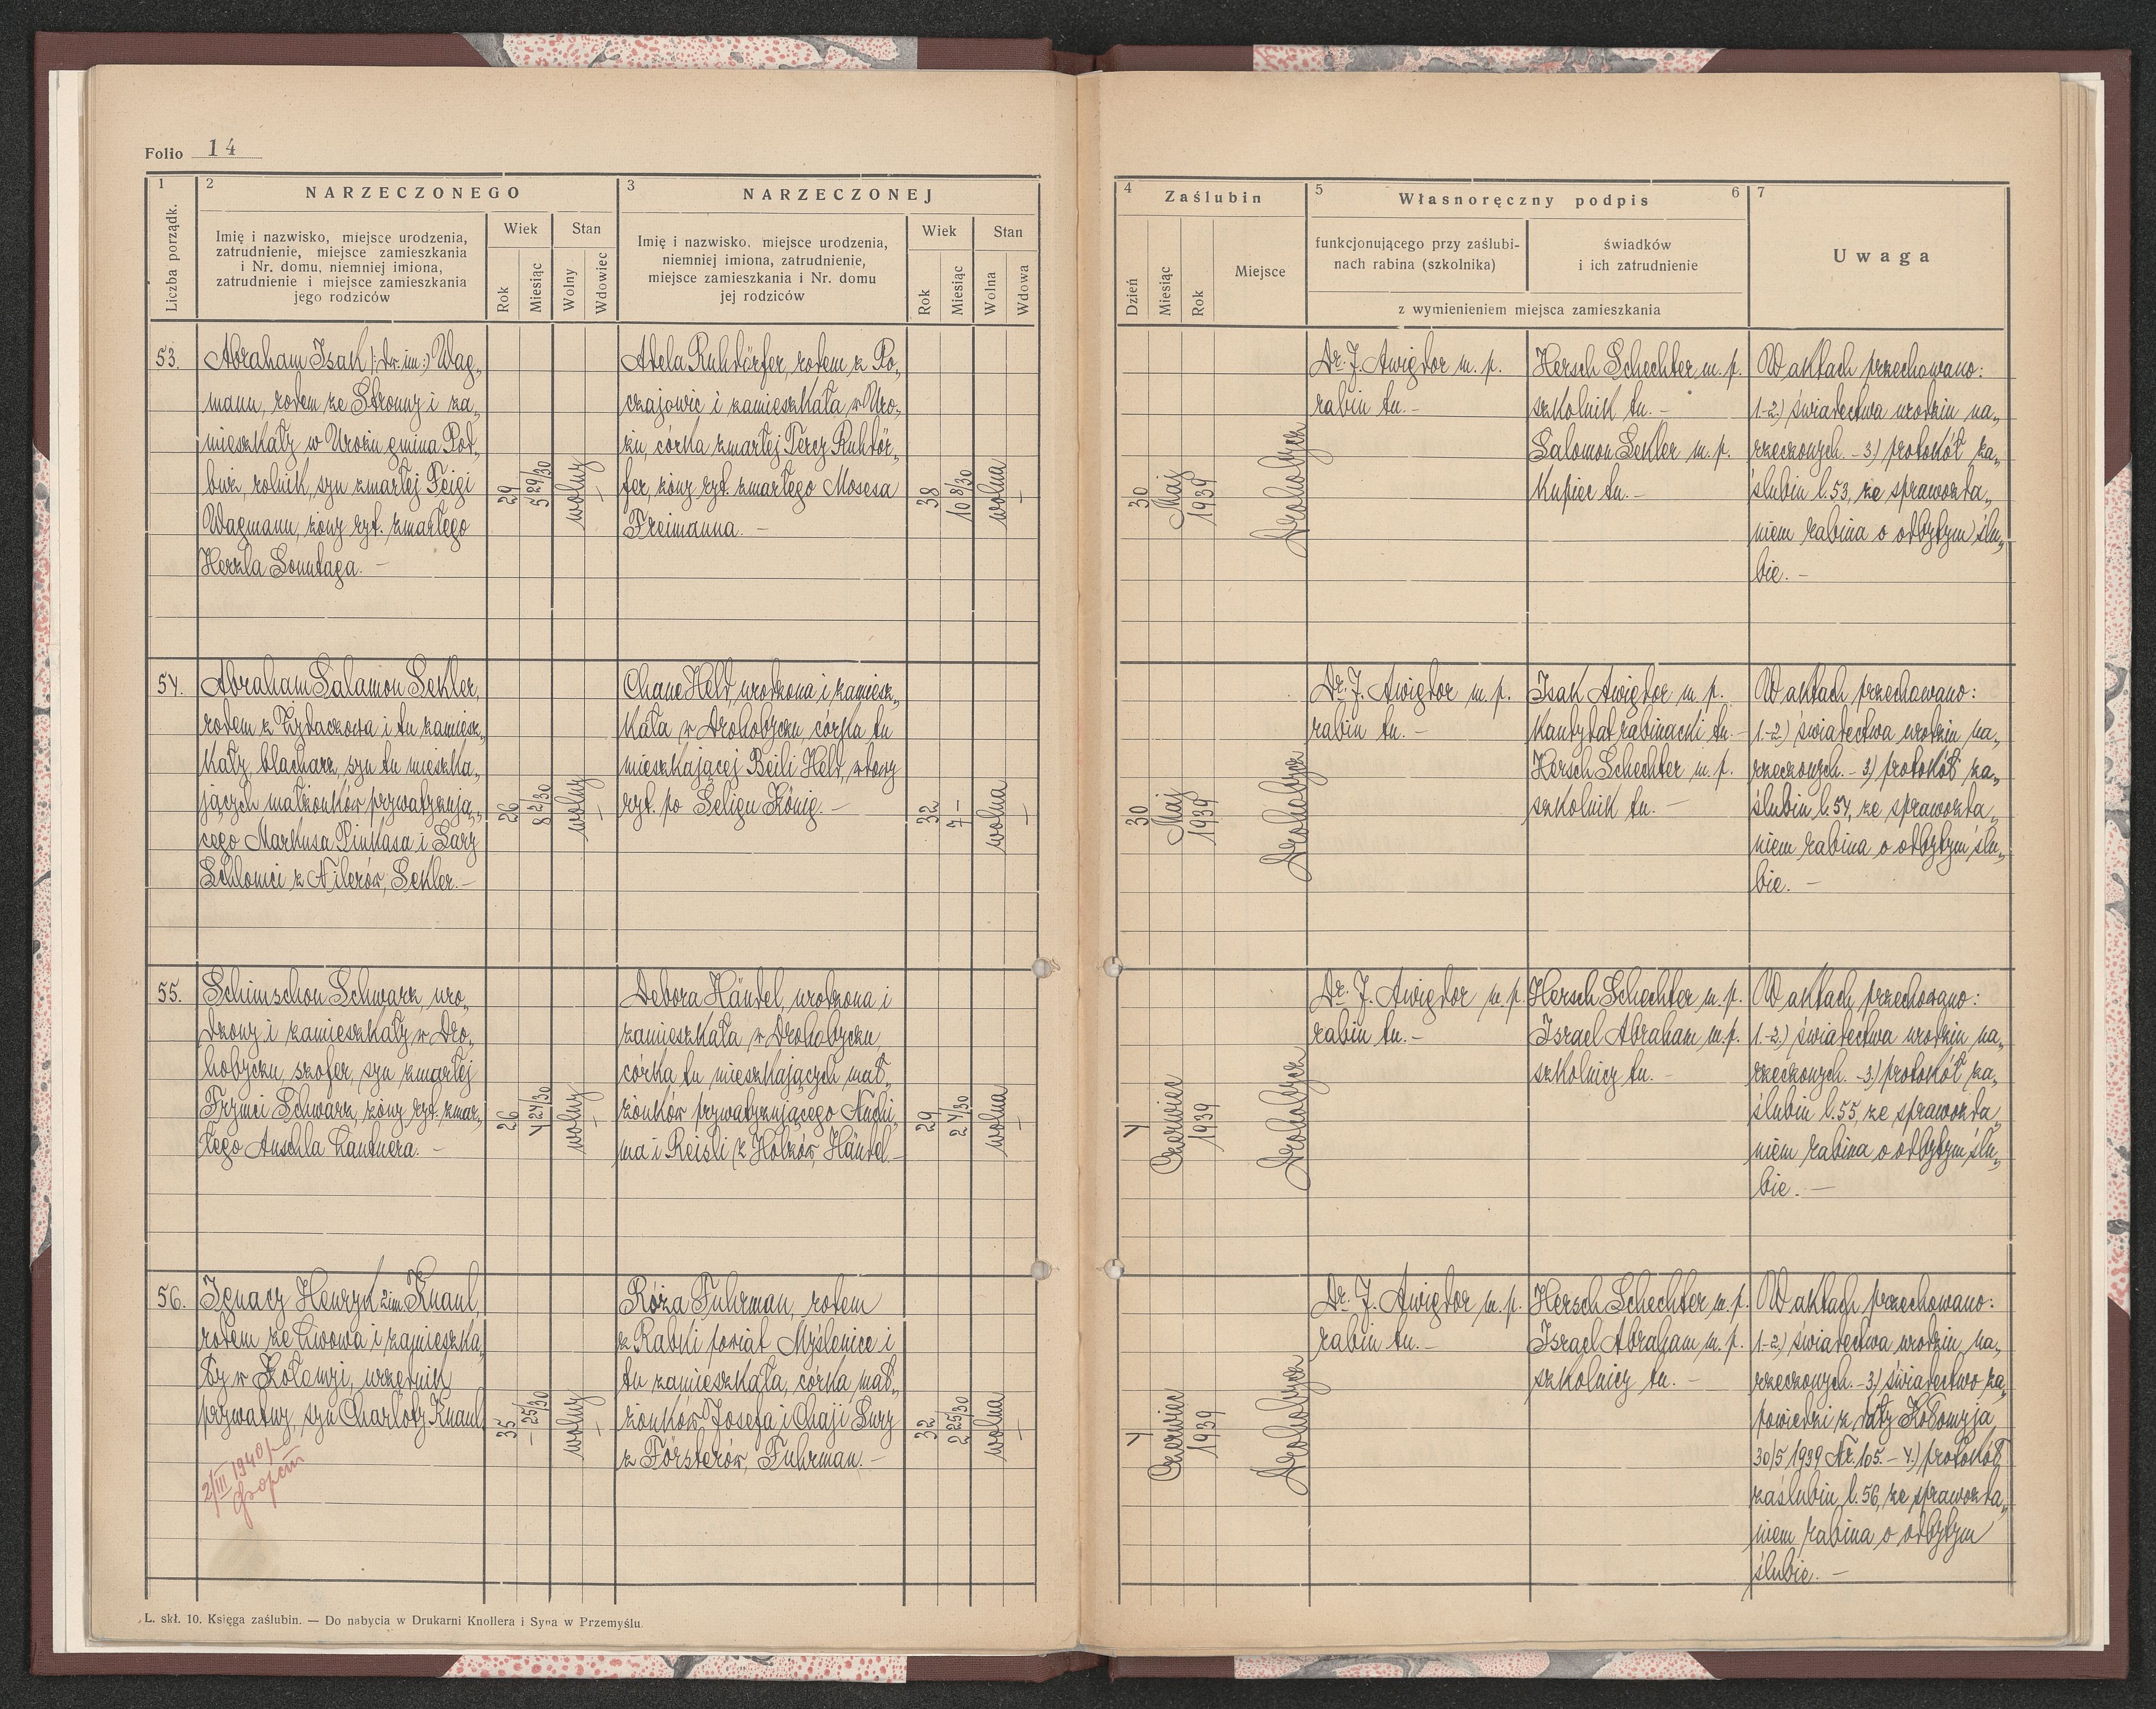 Folio 14
1
2
NARZECZONEGO
3
NARZECZONEJ
Liczba porządk.
Imię i nazwisko, miejsce urodzenia,
zatrudnienie, miejsce zamieszkania
i Nr. domu, niemniej imiona,
zatrudnienie i miejsce zamieszkania
jego rodziców
Wiek
Stan
Rok
Miesiąc
Wolny
Wdowiec
Imię i nazwisko, miejsce urodzenia,
niemniej imiona, zatrudnienie,
miejsce zamieszkania i Nr. domu
jej rodziców
Wiek
Stan
Rok
Miesiąc
Wolna
Wdowa
4
Zaślubin
5
Własnoręczny podpis
6
7
Dzień
Miesiąc
Rok
Miejsce
funkcjonującego przy zaślubi-
nach rabina (szkolnika)
świadków
i ich zatrudnienie
z wymienieniem miejsca zamieszkania
Uwaga
53.
Abraham Isak /: dw. im :/ Wag„
mann, rodem ze Stronny i za„
mieszkały w Urożu gmina Pod„
buż, rolnik, syn zmarłej Feigi
Wagmann, żony ryt. zmarłego
Herzla Sonntaga. —
29
5 29/30
wolny
—
Adela Ruhdörfer, rodem z Po„
czajowic i zamieszkała w Uro„
żu, córka zmarłej Percy Ruhdör„
fer, żony ryt. zmarłego Mosesa
Freimanna. —
38
10 8/30
wolna
—
30
Maj
1939
Drohobycz
Dr. J. Awigdor m. p.
rabin tu. —
Hersch Schechter m. p.
szkolnik tu. —
Salomon Sekler m. p.
Kupiec tu. —
W aktach przechowano:
1.-2.) świadectwa urodzin na„
rzeczonych. — 3.) protokół za„
ślubin l. 53, ze sprawozda„
niem rabina o odbytym ślu„
bie. —
54.
Abraham Salamon Sekler,
rodem z Żydaczowa i tu zamiesz„
kały, blacharz, syn tu mieszka„
jących małżonków prywatyzują„
cego Markusa Pinkasa i Sary
Schlomci z Ailerów, Sekler. —
26
8 2/30
wolny
—
Chane Held, urodzona i zamiesz„
kała w Drohobyczu, córka tu
mieszkającej Beili Held, wdowy
ryt. po Seligu König. —
32
7 —
wolna
—
30
Maj
1939
Drohobycz
Dr. J. Awigdor m. p.
rabin tu. —
Isak Awigdor m. p.
Kandydat rabinacki tu. —
Hersch Schechter m. p.
szkolnik tu. —
W aktach przechowano:
1.-2.) świadectwa urodzin na„
rzeczonych. — 3.) protokół za„
ślubin l. 54, ze sprawozda„
niem rabina o odbytym ślu„
bie. —
55.
Schimschon Schwarz, uro„
dzony i zamieszkały w Dro„
hobyczu, szofer, syn zmarłej
Frymci Schwarz, żony ryt. zmar„
łego Anschla Lantnera. —
26
4 24/30
wolny
—
Debora Händel, urodzona i
zamieszkała w Drohobyczu,
córka tu mieszkających mał„
żonków prywatyzującego Nuchi„
ma i Reisli z Holzów, Händel. —
29
2 4/30
wolna
—
4
Czerwiec
1939
Drohobycz
Dr. J. Awigdor m. p.
rabin tu. —
Hersch Schechter m. p.
Israel Abraham m. p.
szkolnicy tu. —
W aktach przechowano:
1.-2.) świadectwa urodzin na„
rzeczonych. — 3.) protokół za„
ślubin l. 55, ze sprawozda„
niem rabina o odbytym ślu„
bie. —
56.
Ignacy Henryk 2 im. Knaul,
rodem ze Lwowa i zamieszka„
ły w Kołomyi, urzędnik
prywatny, syn Charloty Knaul
2/III 1940 r.
35
— 25/30
wolny
—
Róża Fuhrman, rodem
z Rabki powiat Myślenice i
tu zamieszkała, córka mał„
żonków Josefa i Chaji Sury
z Försterów, Fuhrman. —
32
2 25/30
wolna
—
4
Czerwiec
1939
Drohobycz
Dr. J. Awigdor m. p.
rabin tu. —
Hersch Schechter m. p.
Israel Abraham m. p.
szkolnicy tu. —
W aktach przechowano:
1.-2.) świadectwa urodzin na„
rzeczonych. — 3.) świadectwo za„
powiedzi z daty Kołomyja
30/5 1939 Nr. 105. — 4.) protokół
zaślubin l. 56, ze sprawozda„
niem rabina o odbytym
ślubie. —
L. skł. 10. Księga zaślubin. — Do nabycia w Drukarni Knollera i Syna w Przemyślu.